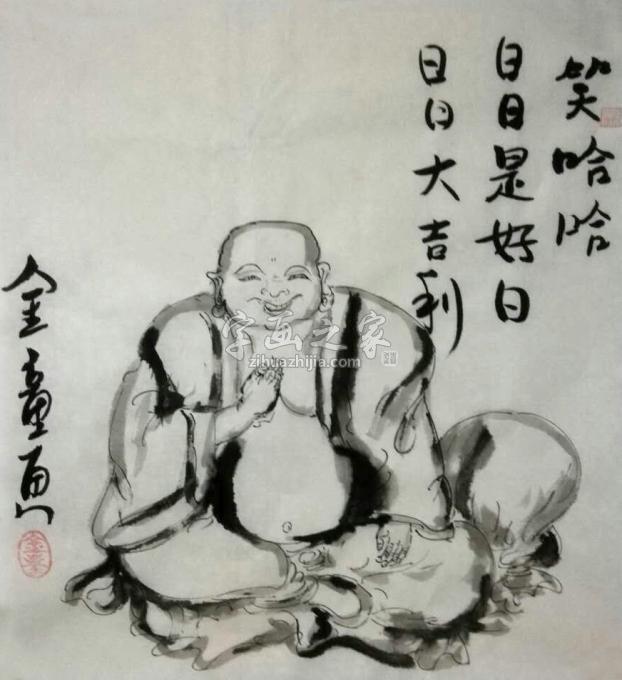 笑哈哈
日日是好日
日日大吉利
金童
字画之家
zihuazhijia.com